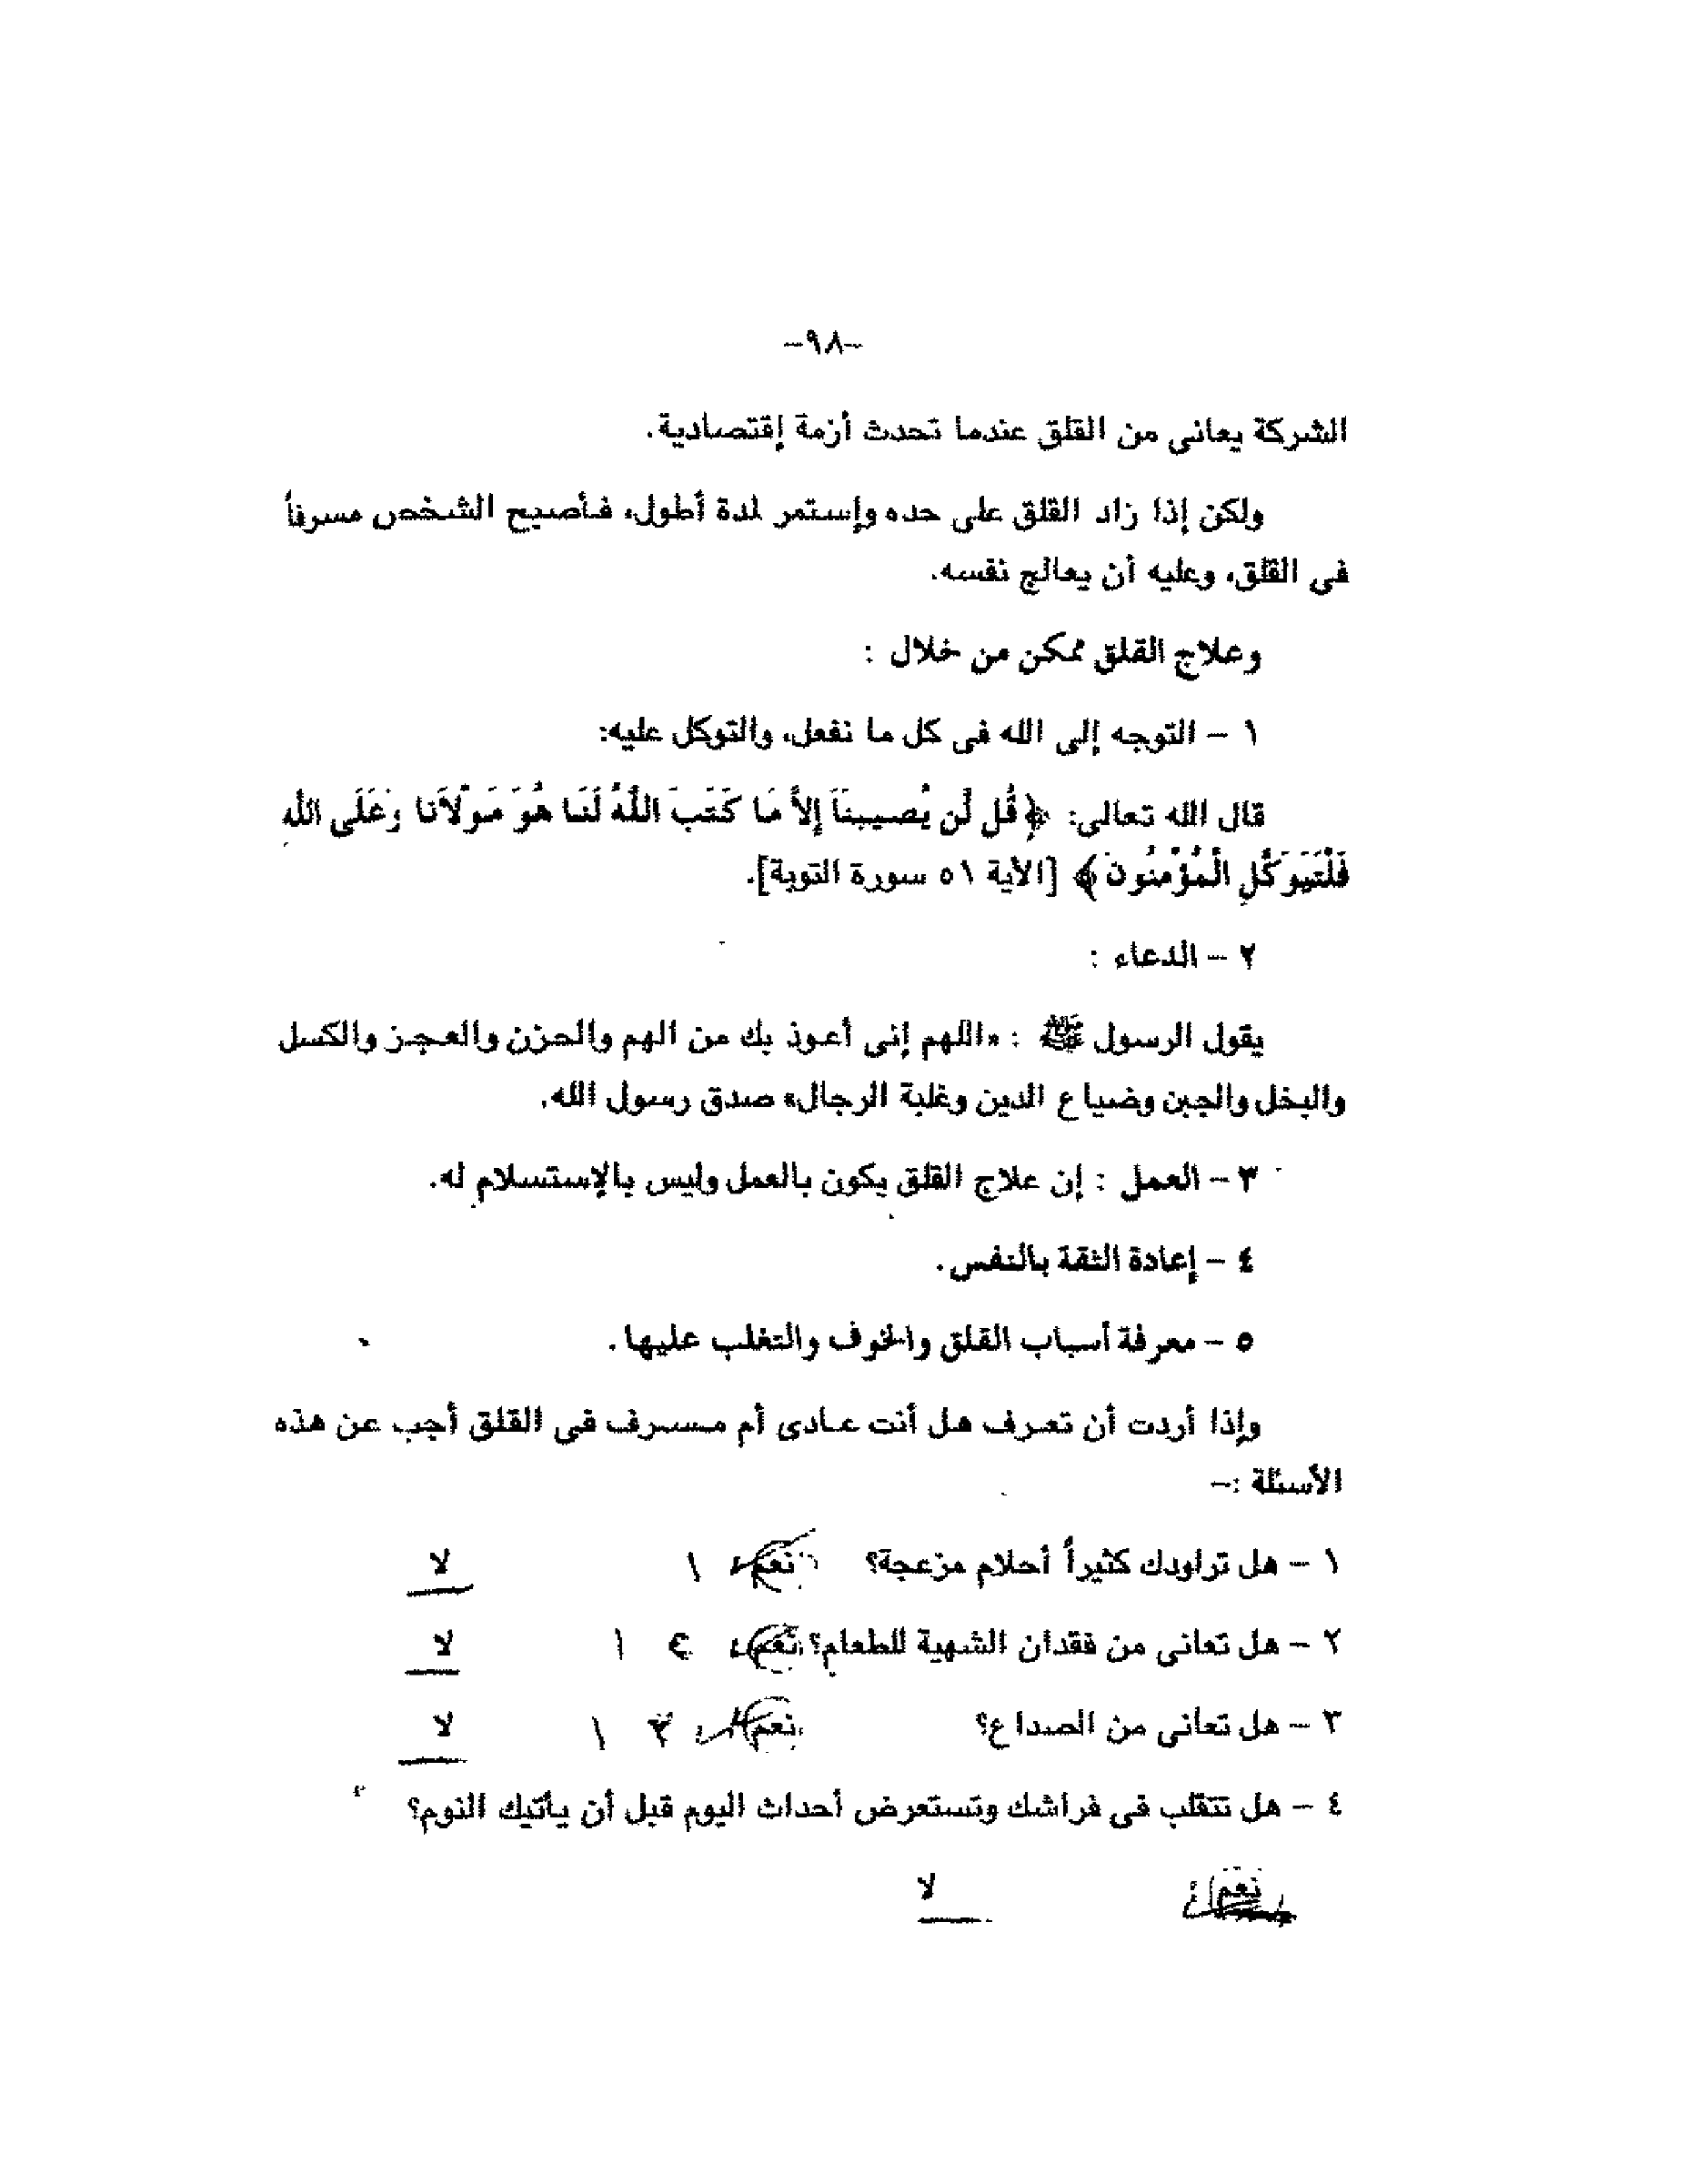 -٩٨-
الشركة يعانى من القلق عندما تحدث أزمة إقتصادية.
ولكن إذا زاد القلق على حده وإستمر لمدة أطول، فأصبح الشخص مسرفاً
فى القلق، وعليه أن يعالج نفسه.
وعلاج القلق ممكن من خلال :
١ - التوجه إلى الله فى كل ما نفعل، والتوكل عليه:
قال الله تعالى: ﴿قُل لَّن يُصِيبَنَا إِلاَّ مَا كَتَبَ اللَّهُ لَنَا هُوَ مَوْلاَنَا وَعَلَى اللَّهِ
فَلْيَتَوَكَّلِ الْمُؤْمِنُونَ﴾ [الآية ٥١ سورة التوبة].
٢ - الدعاء :
يقول الرسول ﷺ : «اللهم إنى أعوذ بك من الهم والحزن والعجز والكسل
والبخل والجبن وضياع الدين وغلبة الرجال» صدق رسول الله.
٣ - العمل : إن علاج القلق يكون بالعمل وليس بالإستسلام له.
٤ - إعادة الثقة بالنفس.
٥ - معرفة أسباب القلق والخوف والتغلب عليها.
وإذا أردت أن تعرف هل أنت عادى أم مسرف فى القلق أجب عن هذه
الأسئلة :-
١ - هل تراودك كثيراً أحلام مزعجة؟ نعم ١ لا
٢ - هل تعانى من فقدان الشهية للطعام؟ نعم ١ لا
٣ - هل تعانى من الصداع؟ نعم ٢ ١ لا
٤ - هل تتقلب فى فراشك وتستعرض أحداث اليوم قبل أن يأتيك النوم؟
نعم لا